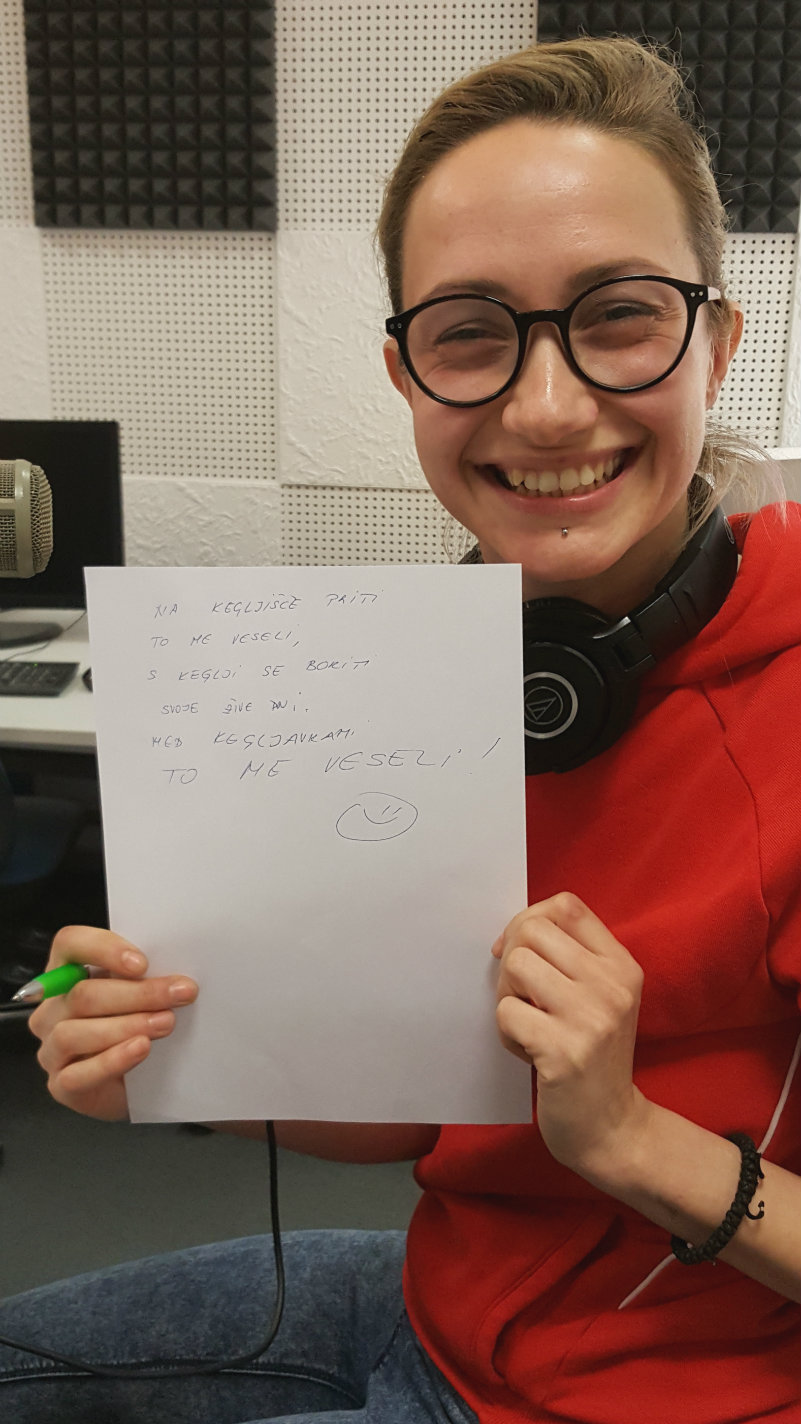 NA KEGLJIŠČE PRITI
TO ME VESELI,
S KEGLJI SE BORITI
SVOJE ŽIVE DNI.
MED KEGLJAVKAMI
TO ME VESELI!